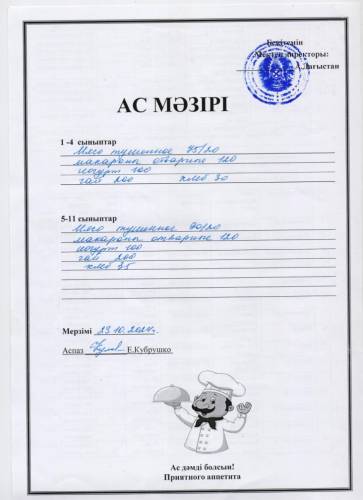 Бекітемін
Мектеп директоры:
А.Дағыстан
АС МӘЗІРІ
1 -4 сыныптар
Мясо тушенное 45/20
макароны отварные 120
йогурт 100
чай 200 хлеб 30
5-11 сыныптар
Мясо тушенное 90/20
макароны отварные 120
йогурт 100
чай 200
хлеб 35
Мерзімі 23.10.2024г.
Аспаз Е.Кубрушко
Ас дәмді болсын!
Приятного аппетита